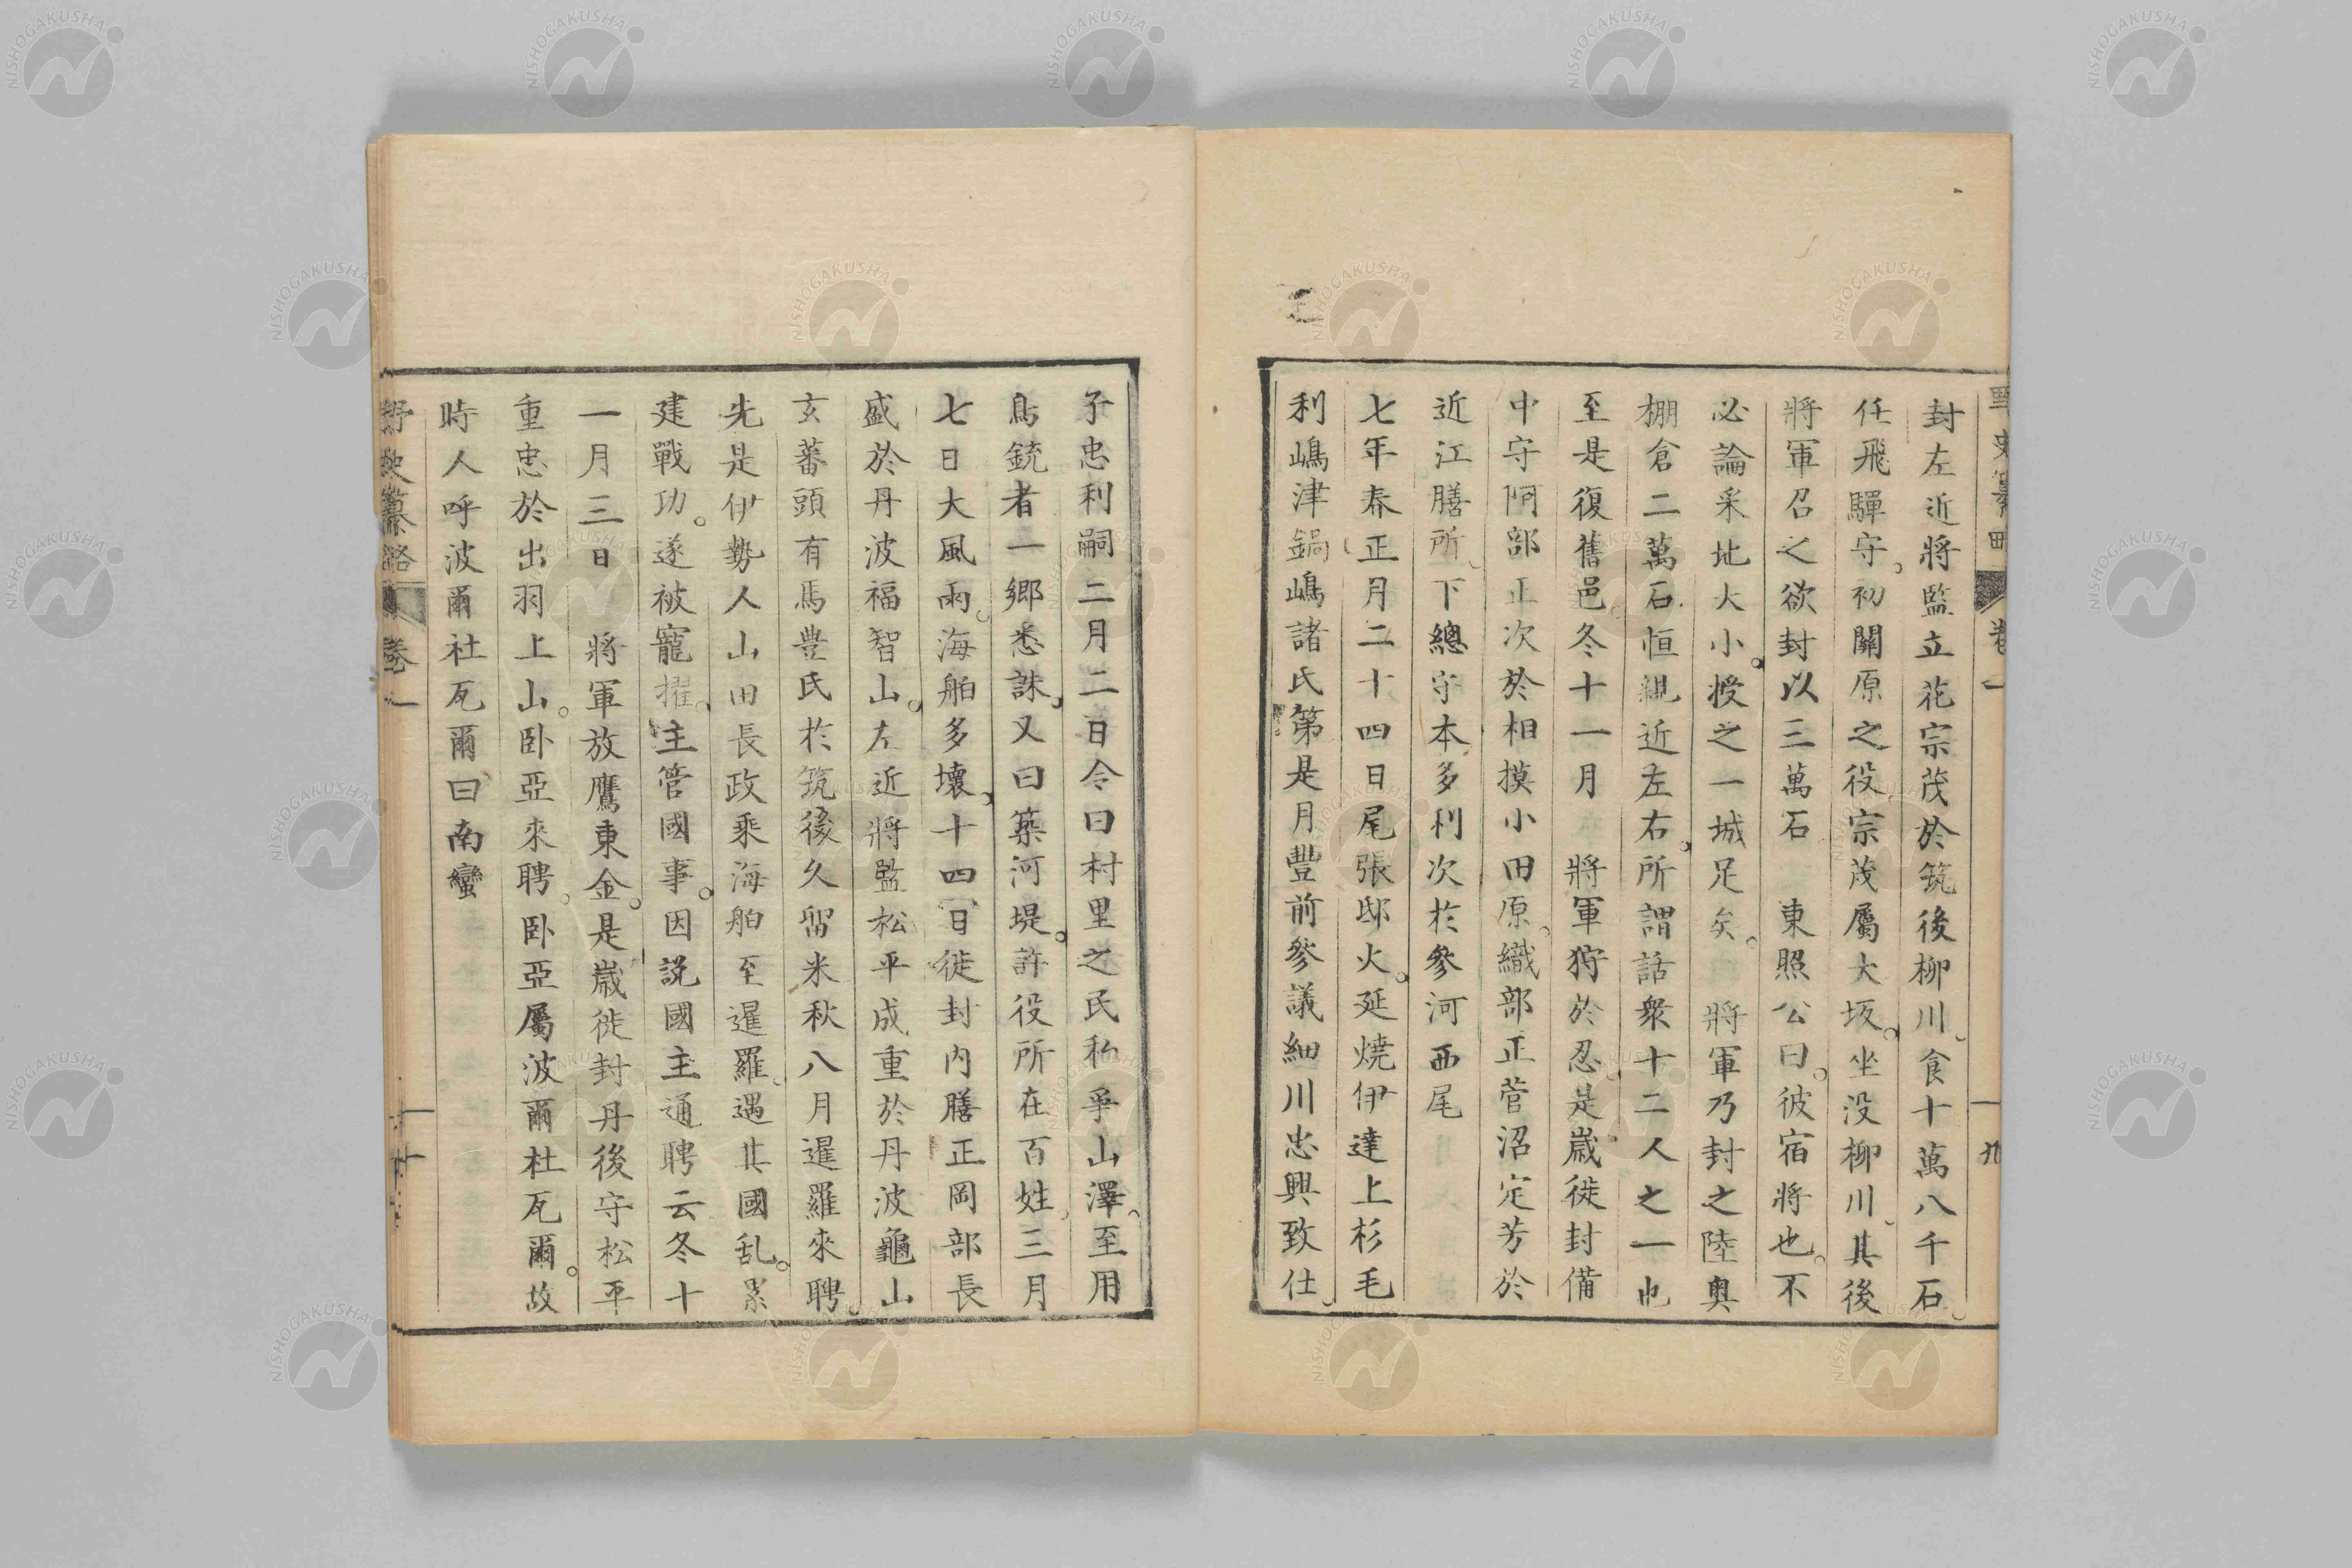 野史纂略 卷一 一九
封左近將監立花宗茂於筑後柳川食十萬八千石
任飛驒守。初關原之役宗茂屬大坂。坐没柳川其後
將軍召之欲封以三萬石 東照公曰。彼宿將也。不
必論采地大小。授之一城足矣。 將軍乃封之陸奥
棚倉二萬石恒親近左右。所謂話衆十二人之一也
至是復舊邑冬十一月 將軍狩於忍是歲徙封備
中守阿部正次於相摸小田原。織部正菅沼定芳於
近江膳所下總守本多利次於參河西尾
七年春正月二十四日尾張邸火。延燒伊達上杉毛
利嶋津鍋嶋諸氏第是月豐前參議細川忠興致仕
子忠利嗣二月二日令曰村里之民私爭山澤至用
鳥銃者一郷悉誅又曰築河堤。許役所在百姓三月
七日大風雨海舶多壞十四日徙封内膳正岡部長
盛於丹波福智山。左近將監松平成重於丹波龜山
玄蕃頭有馬豊氏於筑後久留米秋八月暹羅來聘
先是伊勢人山田長政乘海舶至暹羅遇其國乱。累
建戰功。遂被寵擢。主管國事。因説國主通聘云冬十
一月三日 將軍放鷹東金。是歲徙封丹後守松平
重忠於出羽上山。卧亞來聘。卧亞屬波爾杜瓦爾。故
時人呼波爾社瓦爾曰南蠻
野史纂略 卷一
NISHOGAKUSHA